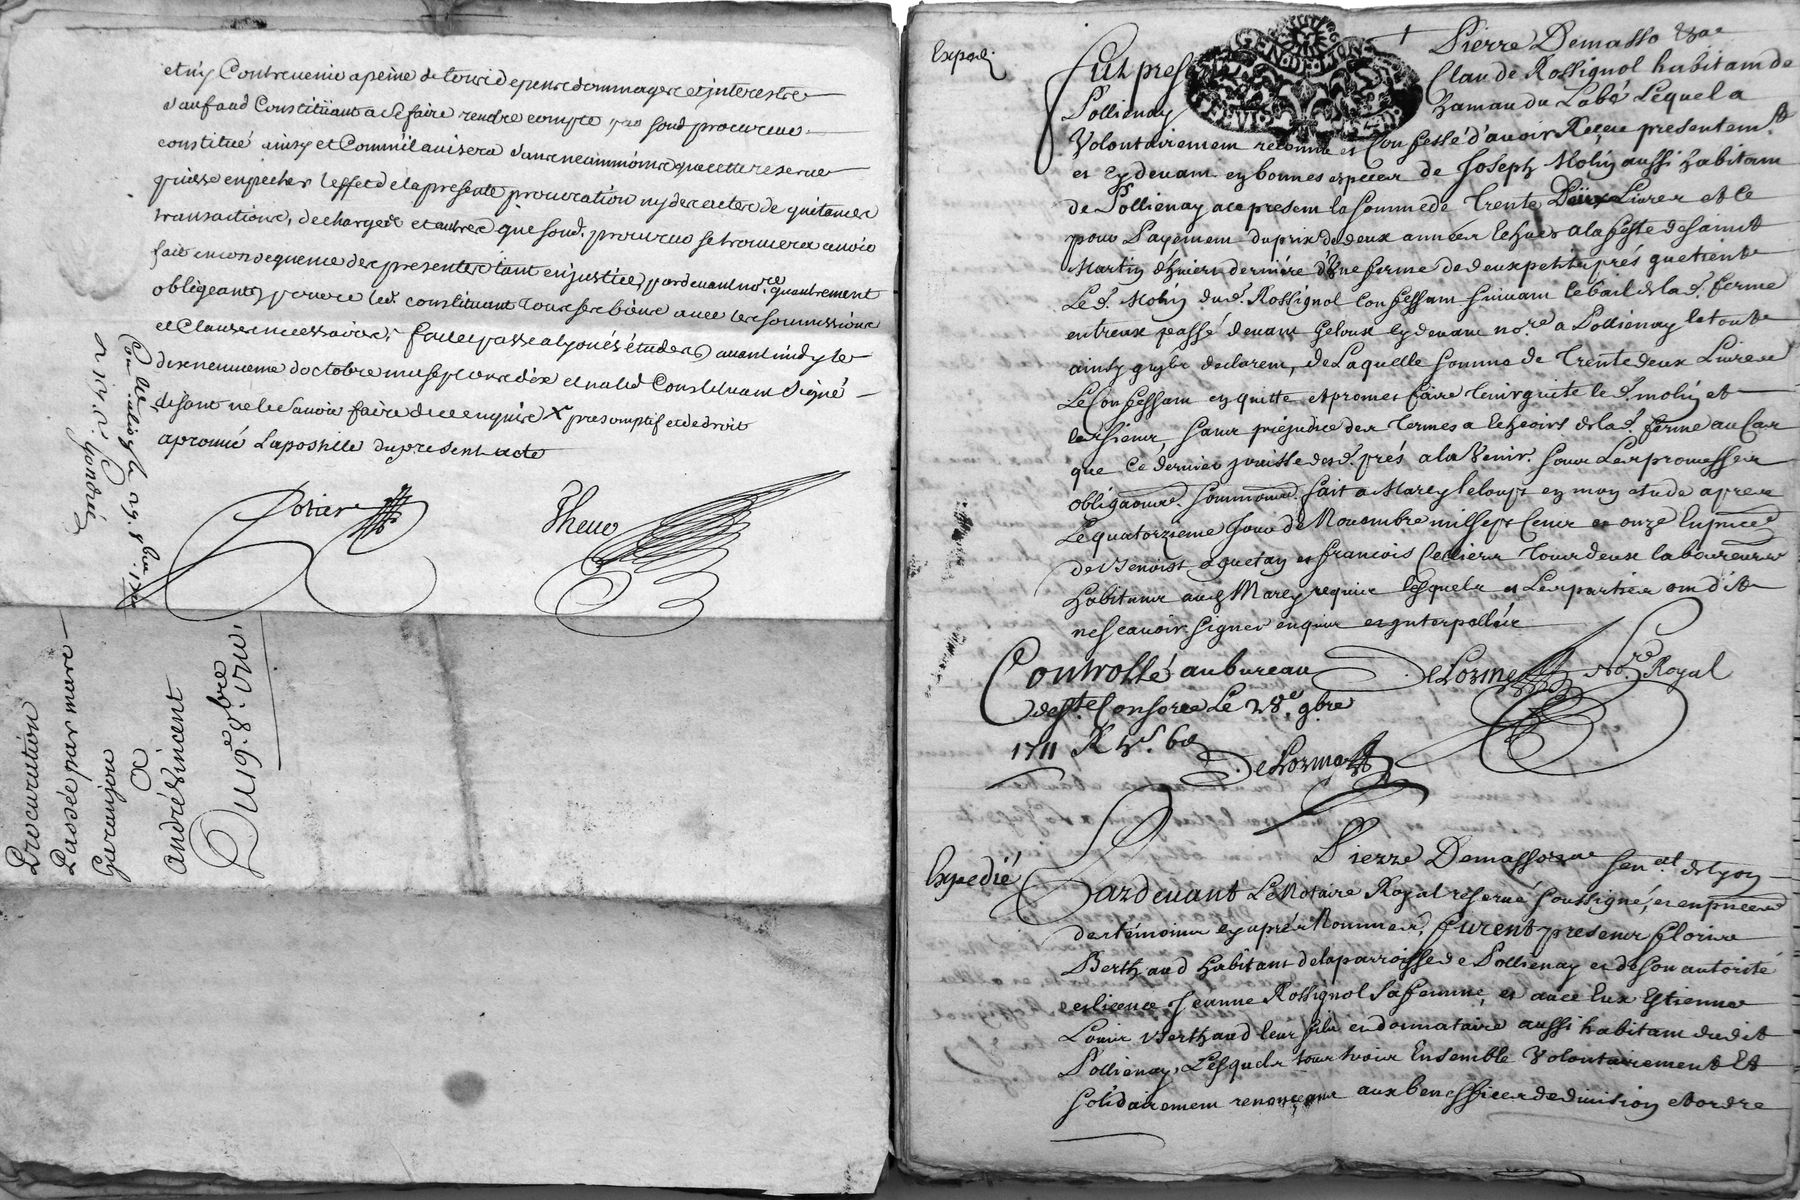 et n'y Contrevenir a peine de tous depens dommages et interestz
sauf aud Constituant a se faire rendre compte par son d procureur
constitué ainsy et Comm'il avisera sans neammoins que cette reserve
puisse enpecher l'effet de la presente procuration ny des actes de quitances
transactions, decharges et autres que son d. procureur se trouvera avoir
fait en consequence des presentes tant en justice, pardevant no.re qu'autrement
obligeant led. constituant tous ses biens avec les soumissions
et Clauses necessaires. fait et passé a avant midy le
dixneuvieme d'octobre mil sept cens dix et n'a led Constituant Signé
disant ne le Scavoir faire de ce enquis X presomptif et de droit
aprouvé L'apostille du present acte
Thevo
Con.lé 29. 8bre. 17
Procuration
Passée par mare
Garanjou
a
andré Vincent
Du 19e. 8bre.
Exped.
GEN. DE LYON
Pierre Demasso
fut pres Claude Rossignol habitant de
Pollienay Lequel a
Volontairement reconnu et Confessé d'avoir Receu presentem.t
et cy devant en bonnes especes de Joseph Mohy aussi habitant
de Pollienay ace present la somme de Trente Deux Livres et ce
pour Payement du prix de deux années echues a la feste de saint
Martin d'hiver derniere d'Une ferme de deux petits prés que tient
Le d. Mohy dud. Rossignol Confessant suivant le bail de la d. ferme
entreux passé devant Geloux cy devant no.re a Pollienay le tout
ainsy qu'ils declarent, de Laquelle somme de Trente deux Livres
Le Confessant en quitte et promet faire Tenir quite le d. mohy et
les siens, sans préjudice des Termes a Echeoirs de la d. ferme au Cas
que Ce dernier jouisse desd. prés a la Venir. sous Les promesses
obligaõns. soummõns. fait a Marcy le loup en mon etude apres
Le quatorzieme Jour de Novembre mil sept Cent et onze En pñce
de Benoist et francois Cellier Tous deux laboureurs
habitans aud Marcy requis lesquels et Les parties ont dit
ne Scavoir signer enquis et interpellés
Controllé au bureau DeLorme No.re Royal
de Ste Consorce Le 28.e 9bre
1711 R
DeLorme
Pierre Demasso Sen.cal de Lyon
Expedié Pardevant Le Notaire Royal reservé soussigné, et en pñce
des témoins cy aprés Nommés, furent presens floris
Berthaud habitant de la parroisse de Pollienay et de son autorité
et licence Jeanne Rossignol Sa femme, et avec Eux Estienne
Louis Berthaud leur fils et donnataire aussi habitant dudit
Pollienay, Lesquels tous trois Ensemble Volontairement Et
solidairement renonceant aux benefices de division et ordre